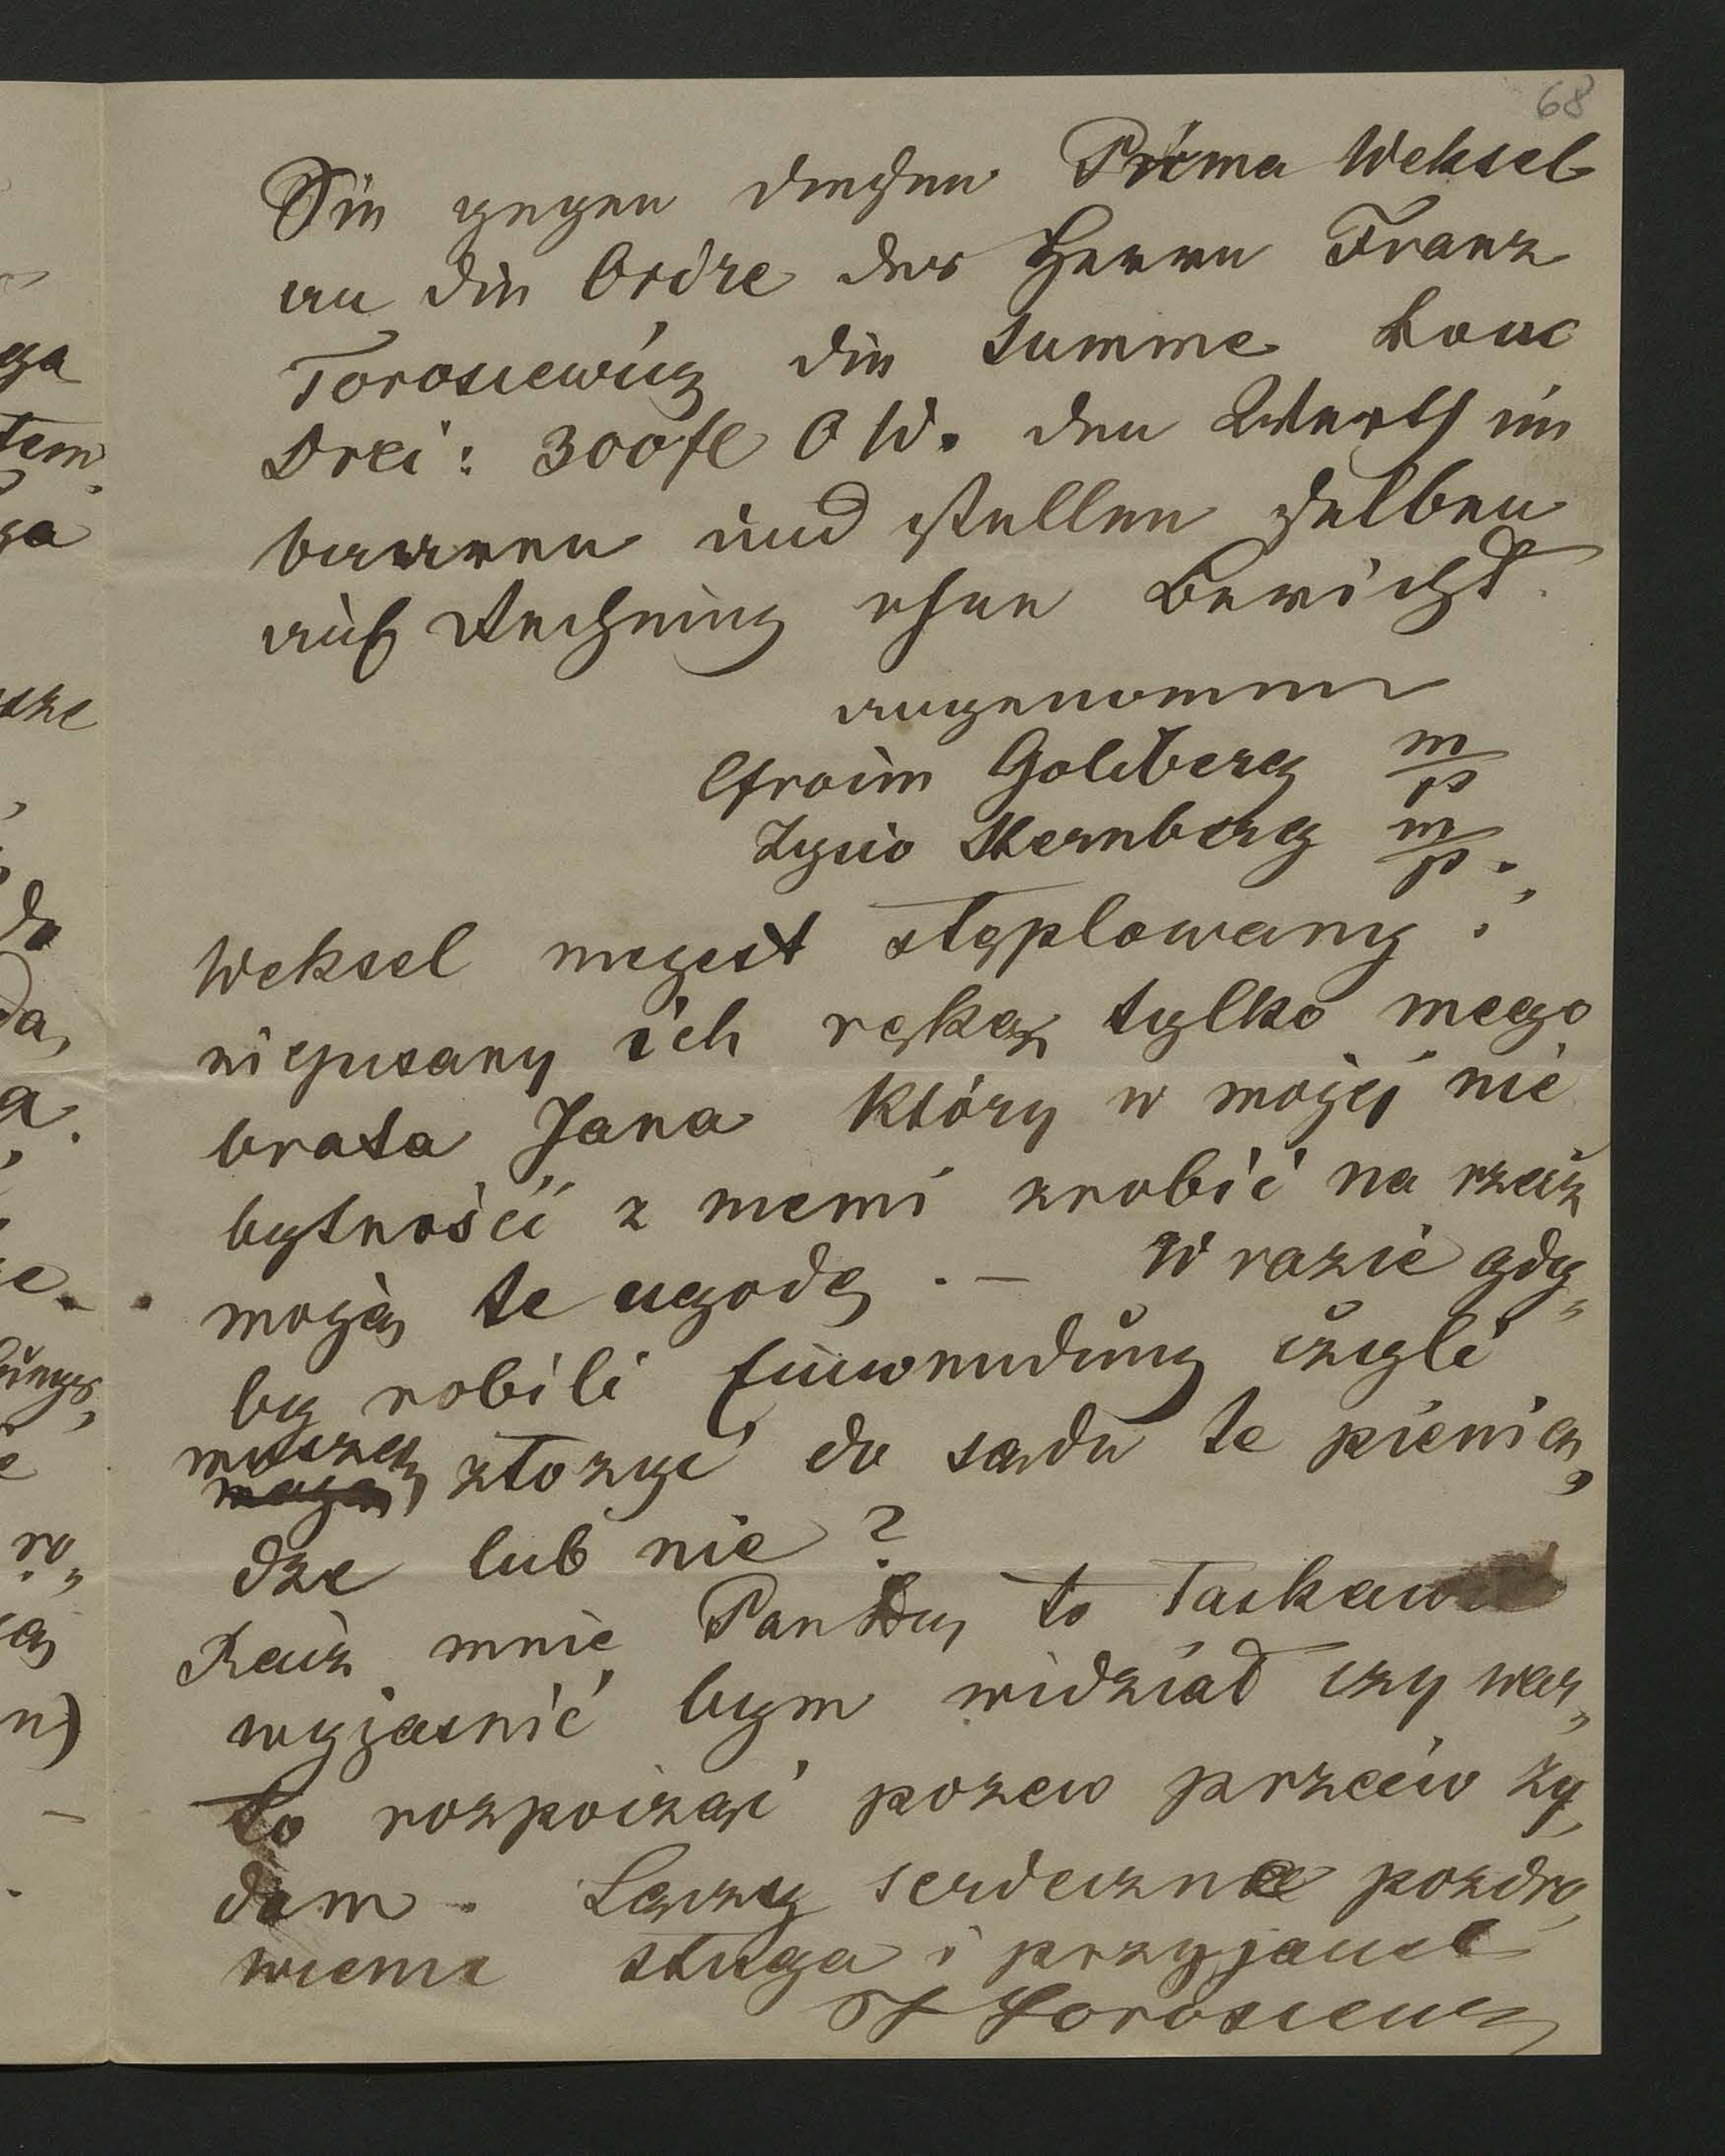 68
Sie gegen diesen Prima Weksel
an die Ordre des Herrn Franz
Torosiewicz die Summe von
Drei: 300 fl O W. den Werth im
baaren und stellen selben
auf Rechnung ohne Bericht.
angenommen
Efroim Goldberg m/p
Zysio Sternberg m/p.
Weksel niejest stęplowany i
niepisany ich ręką tylko mego
brata Jana który w mojej nie
bytności z niemi zrobić na rzecz
moją te ugodę . — W razie gdy„
by robili Einwendung czyli
muszę złożyć do sądu te pienią„
dze lub nie ?
Racz mnie Pan to łaskawie
wyjasnić bym widział czy war„
to rozpocząć pozew przeciw ży„
dom . Łączę serdeczne pozdro„
wienie sługa i przyjaciel
F Torosiewicz
ga
tem
ga
sze
do
da,
a.
ze.
e
ro„
n)